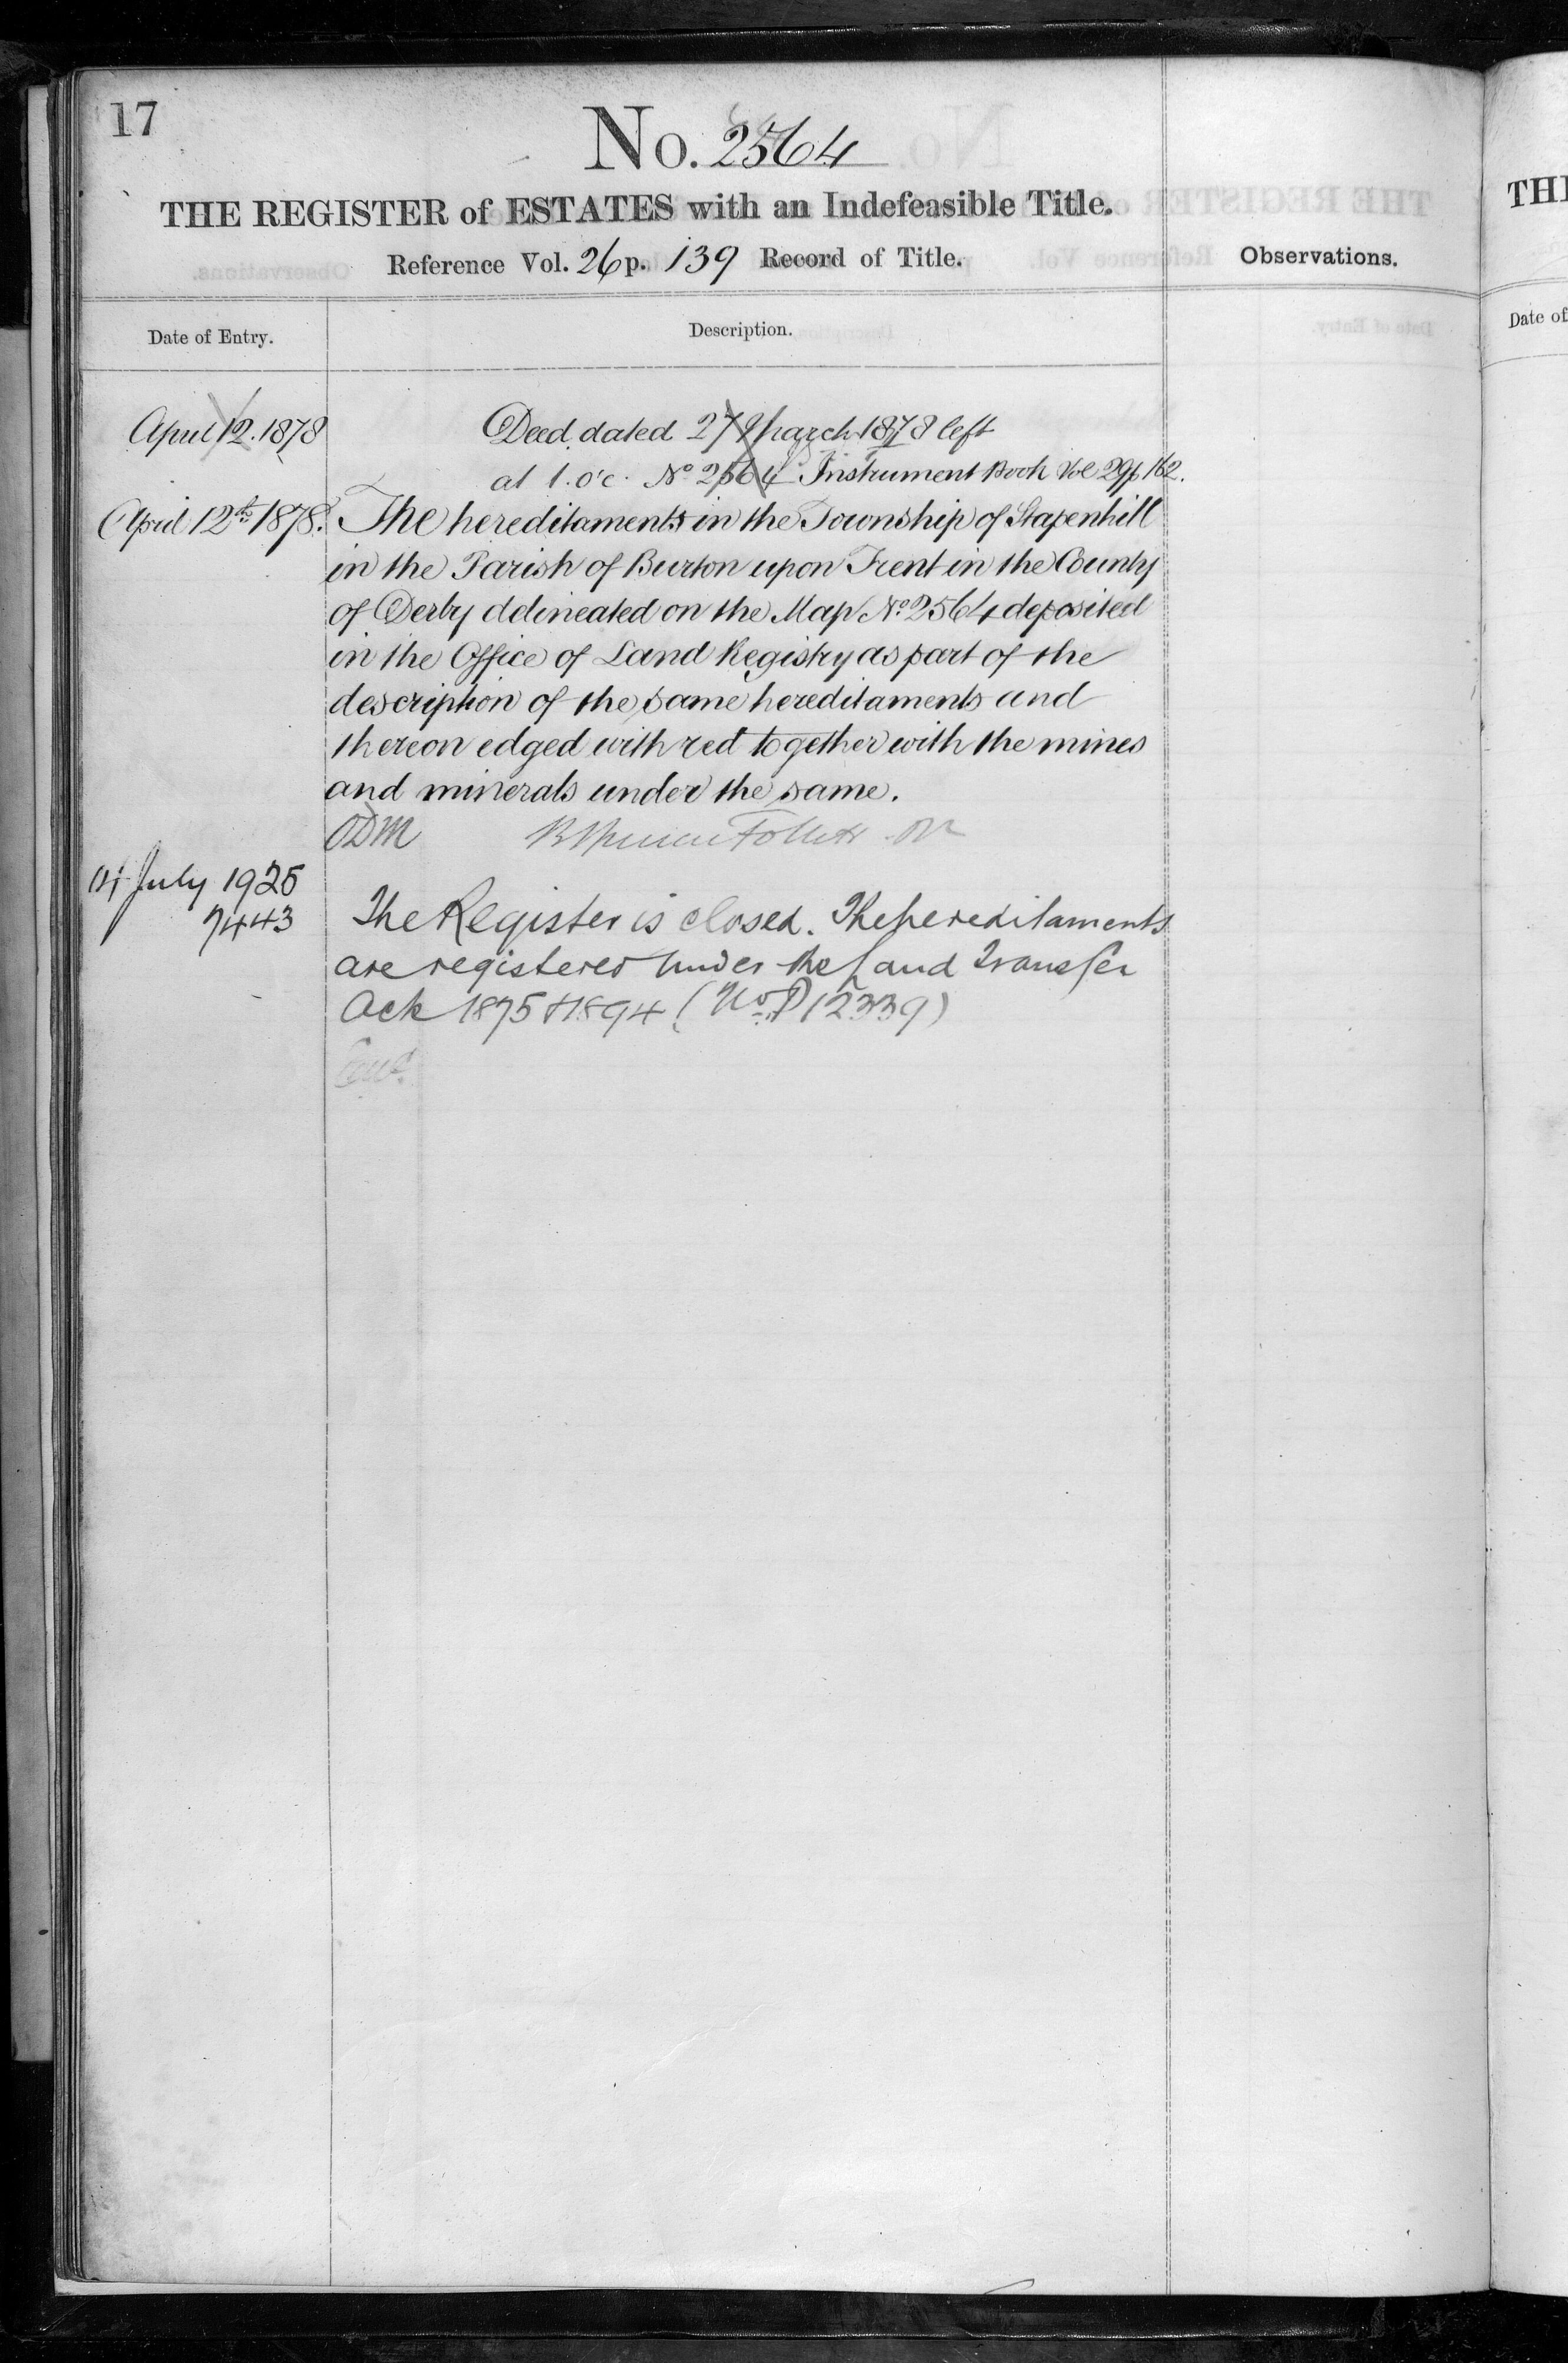 17
No. 2564
THE REGISTER of ESTATES with an Indefeasible Title.
Reference Vol. 26 p. 139 Record of Title.
Observations.
Date of Entry.
Description.
April 12. 1878
Deed dated 27 March 1878 left
at 1. o'c. No 2564 Instrument Book Vol 29 p 162.
April 12th 1878.
The hereditaments in the Township of Stapenhill
in the Parish of Burton upon Trent in the County
of Derby delineated on the Map No 2564 deposited
in the Office of Land Registry as part of the
description of the same hereditaments and
thereon edged with red together with the mines
and minerals under the same.
ODM
July 1925
7443
The Register is closed. The hereditaments
are registered under the Land Transfer
Acts 1875 & 1894 (No. P12339)
THE
Date of